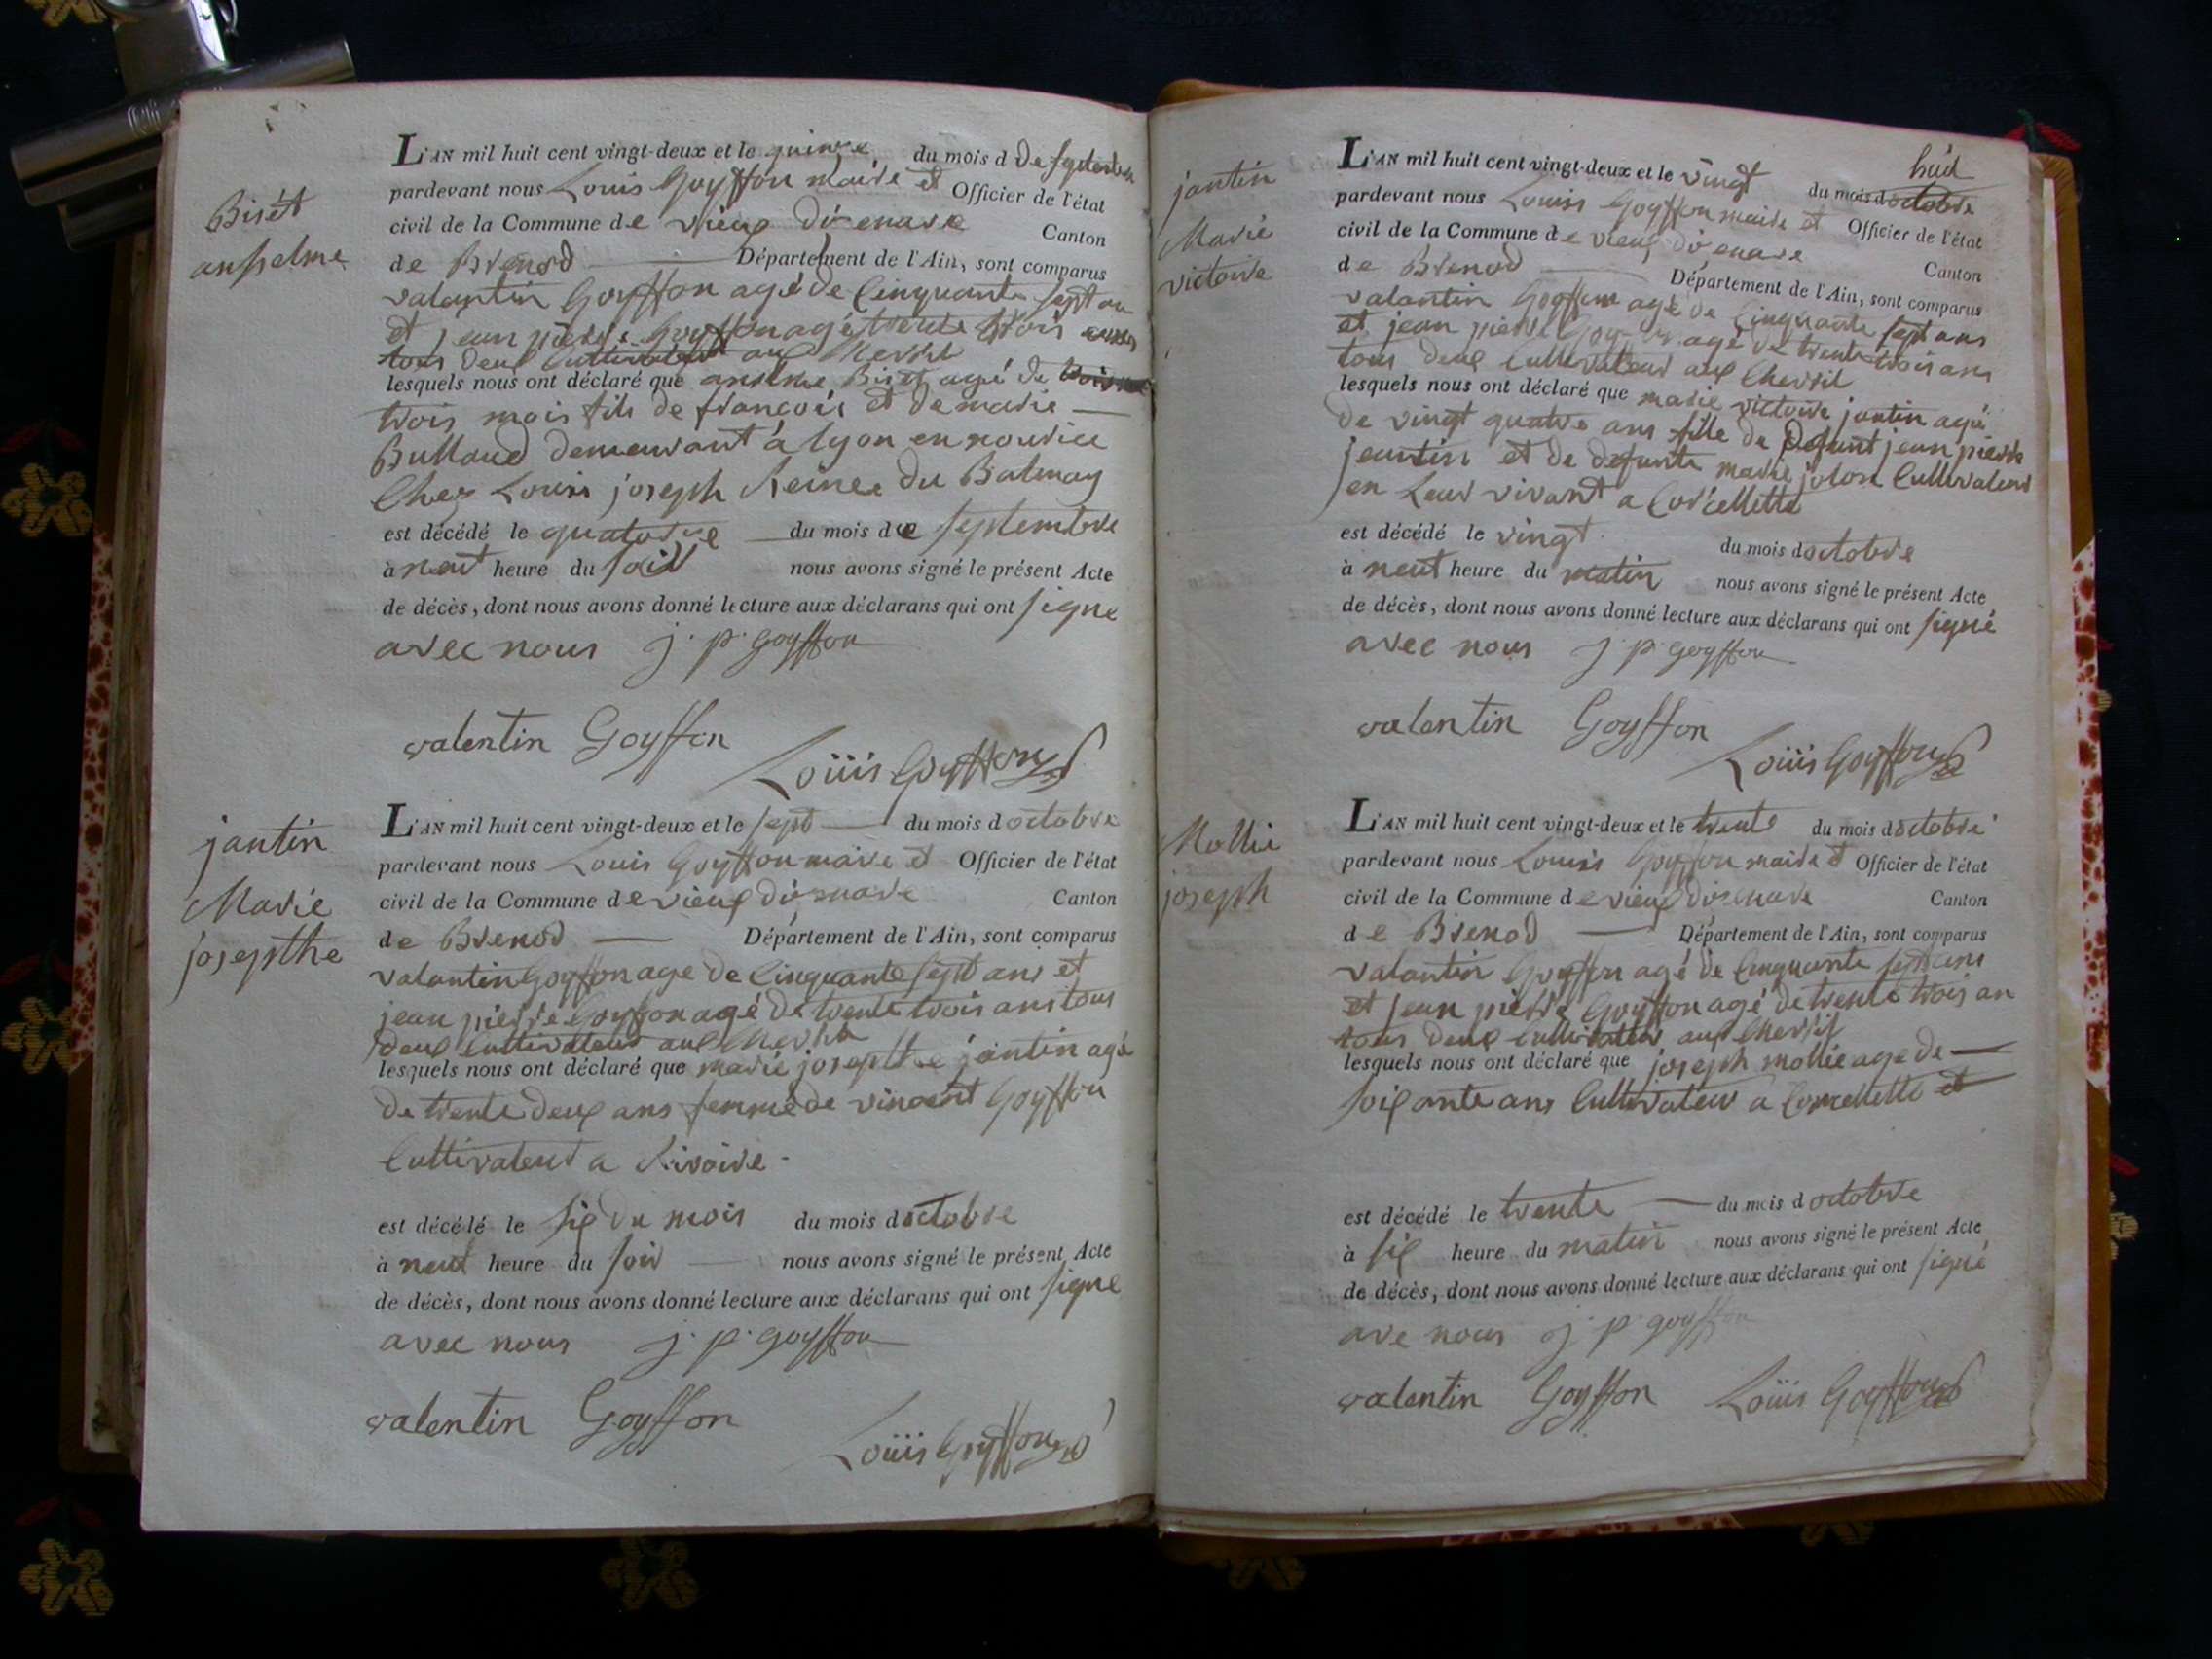 Biret
anselme
L'AN mil huit cent vingt-deux et le quinze du mois d De septembre
pardevant nous Louis Goyffon maire et Officier de l'état
civil de la Commune de vieux d'isenave Canton
de Brenod Département de l'Ain, sont comparus
valantin Goyffon agé de Cinquante sept an
et jean pierre Goyffon agé trente trois
tous deux Cultivateur aux
lesquels nous ont déclaré que anselme Biret agé de
trois mois fils de françois et de marie
Bulland demeurant a lyon en nourice
Chez Louis joseph Reine du Balmay
est décédé le quatorze du mois de septembre
à neut heure du soir nous avons signé le présent Acte
de décès, dont nous avons donné lecture aux déclarans qui ont signé
avec nous j. p. goyffon
valentin Goyffon
Loüis Goyffon
jantin
Marie
josepthe
L'AN mil huit cent vingt-deux et le sept du mois d octobre
pardevant nous Louis Goyffon maire et Officier de l'état
civil de la Commune de vieux d'isenave Canton
de Brenod Département de l'Ain, sont comparus
valantin Goyffon age de Cinquante sept ans et
jean pierre Goyffon agé de trente trois ans tous
deux Cultivateur aux
lesquels nous ont déclaré que marie josepthe jantin agé
de trente deux ans femme de vincent Goyffon
Cultivateur a Rivoire
est décédé le six du mois du mois d octobre
à neut heure du soir nous avons signé le présent Acte
de décès, dont nous avons donné lecture aux déclarans qui ont signé
avec nous j. p. goyffon
valentin Goyffon
Loüis Goyffon
jantin
Marie
victoire
L'AN mil huit cent vingt-deux et le vingt du mois d octobre
pardevant nous Louis Goyffon maire et Officier de l'état
civil de la Commune de vieux d'isenave Canton
de Brenod Département de l'Ain, sont comparus
valantin Goyffon agé de Cinquante sept ans
et jean pierre Goyffon agé de trente trois ans
tous deux Cultivateur aux
lesquels nous ont déclaré que marie victoire jantin agé
de vingt quatre ans fille de Defunt jean pierre
jeantin et de defunte marie Cultivateur
en Leur vivant a Corcellette
est décédé le vingt du mois d octobre
à neut heure du matin nous avons signé le présent Acte
de décès, dont nous avons donné lecture aux déclarans qui ont signé
avec nous j. p. goyffon
valentin Goyffon
Loüis Goyffon
Mollie
joseph
L'AN mil huit cent vingt-deux et le trente du mois d octobre
pardevant nous Louis Goyffon maire et Officier de l'état
civil de la Commune de vieux d'isenave Canton
de Brenod Département de l'Ain, sont comparus
valantin Goyffon agé de Cinquante sept ans
et jean pierre Goyffon agé de trente trois an
tous deux Cultivateur aux
lesquels nous ont déclaré que joseph mollie age de
soixante ans Cultivateur a Corcellette et
est décédé le trente du mois d octobre
à six heure du matin nous avons signé le présent Acte
de décès, dont nous avons donné lecture aux déclarans qui ont signé
ave nous j. p. goyffon
valentin Goyffon Loüis Goyffon